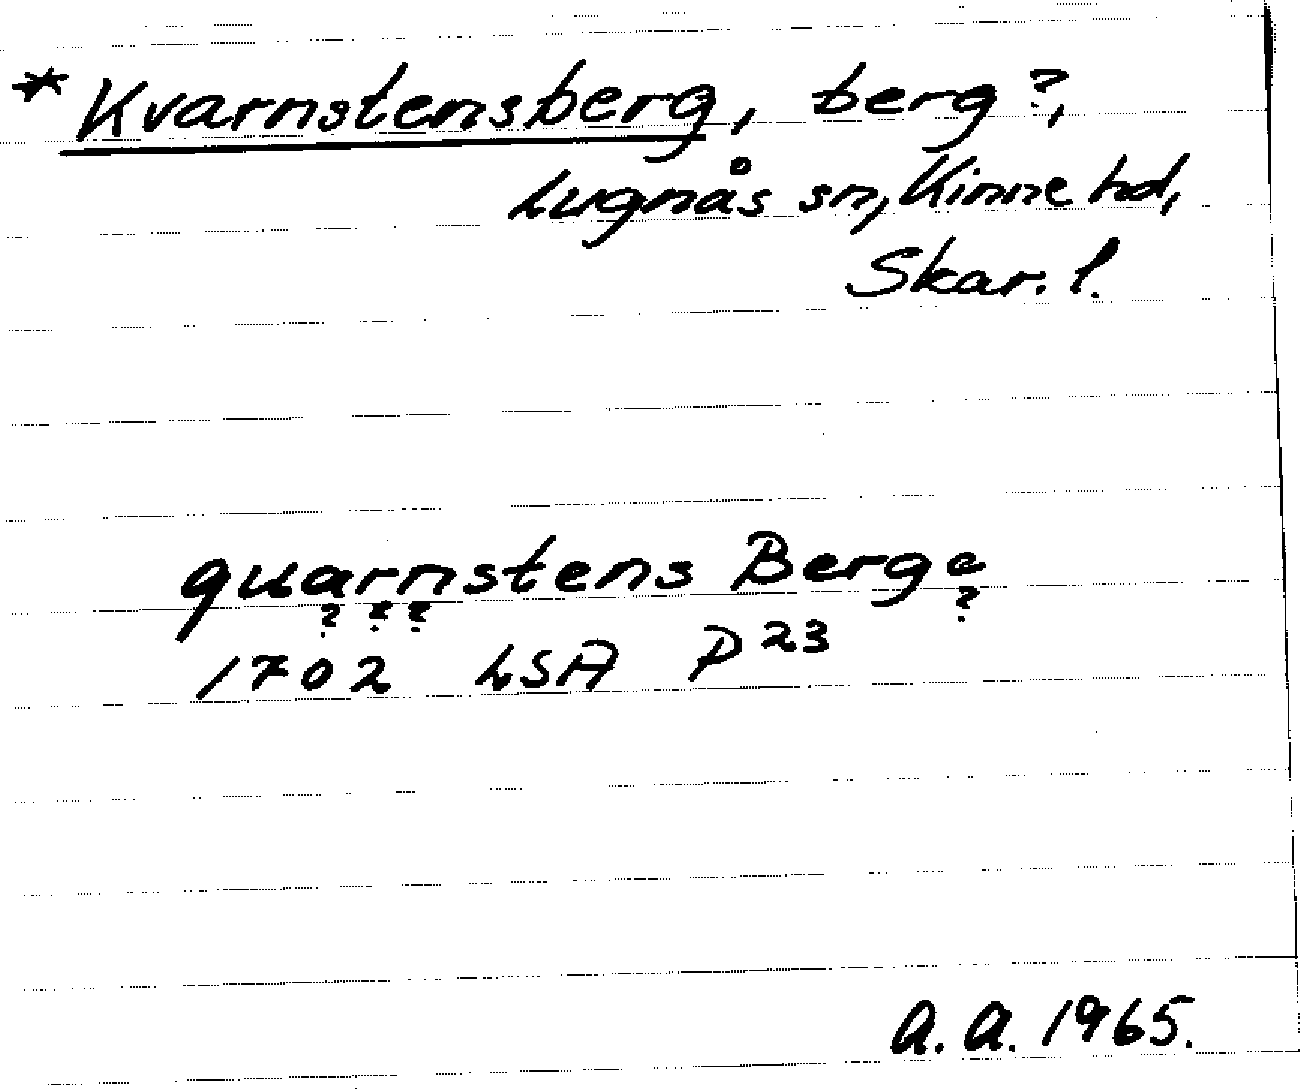 * Kvarnstensberg, berg?,
Lugnås sn, Kinne hd,
Skar. l.
quarnstens Berge
? ? ? ?
1702 LSA P 23
A. A. 1965.